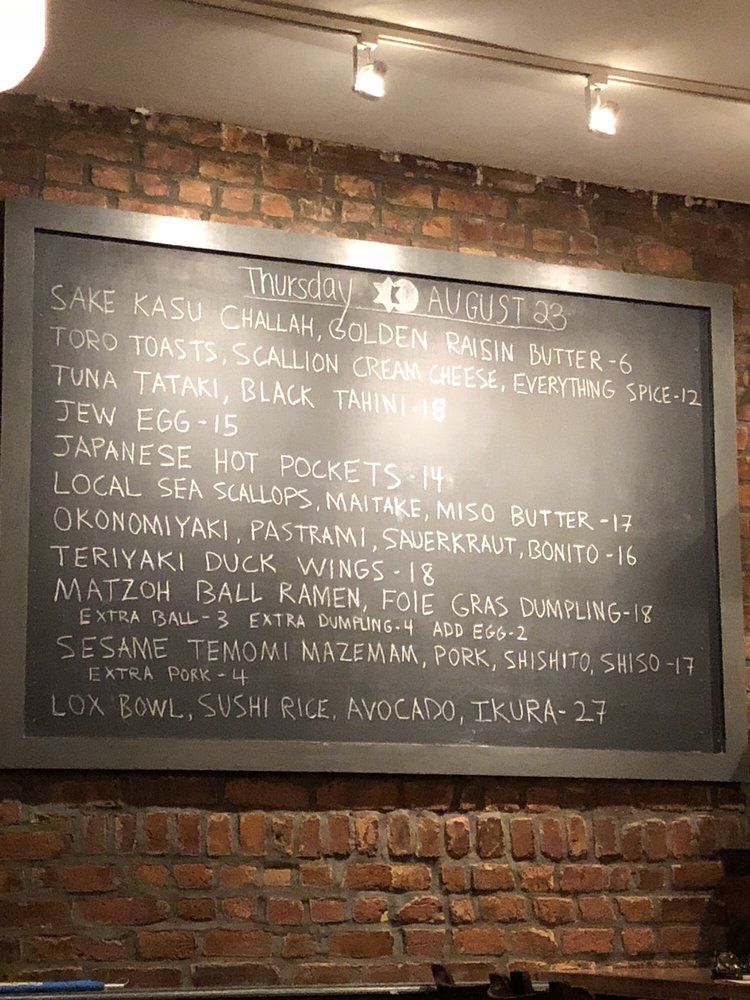 Thursday AUGUST 23
SAKE KASU CHALLAH, GOLDEN RAISIN BUTTER - 6
TORO TOASTS, SCALLION CREAM CHEESE, EVERYTHING SPICE - 12
TUNA TATAKI, BLACK TAHINI - 18
JEW EGG - 15
JAPANESE HOT POCKETS - 14
LOCAL SEA SCALLOPS, MAITAKE, MISO BUTTER - 17
OKONOMIYAKI, PASTRAMI, SAUERKRAUT, BONITO - 16
TERIYAKI DUCK WINGS - 18
MATZOH BALL RAMEN, FOIE GRAS DUMPLING - 18
EXTRA BALL - 3 EXTRA DUMPLING - 4 ADD EGG - 2
SESAME TEMOMI MAZEMAM, PORK, SHISHITO, SHISO - 17
EXTRA PORK - 4
LOX BOWL, SUSHI RICE, AVOCADO, IKURA - 27